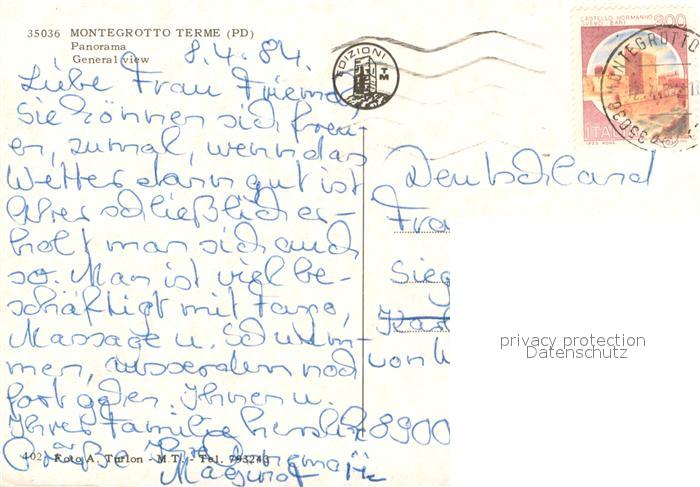 35036 MONTEGROTTO TERME (PD)
Panorama
General view
8.4.84.
Liebe Frau
Sie können sich freu-
en, zumal, wenn das
Wetter dann gut ist
Aber schließlich er-
holt man sich auch
so. Man ist viel be-
schäftigt mit Fango,
Massage u. Schwim-
men, ausserdem noch
Ihnen u.
Ihrer Familie herzliche
Grüße Ihre
402 Foto A. Turlon - M.T. - Tel. 793243
EDIZIONI
TM
CASTELLO NORMANNO
SVEVO - BARI
300
ITALIA
MONTEGROTTO
35036
Deutschland
Frau
Sieg
von
8900
privacy protection
Datenschutz